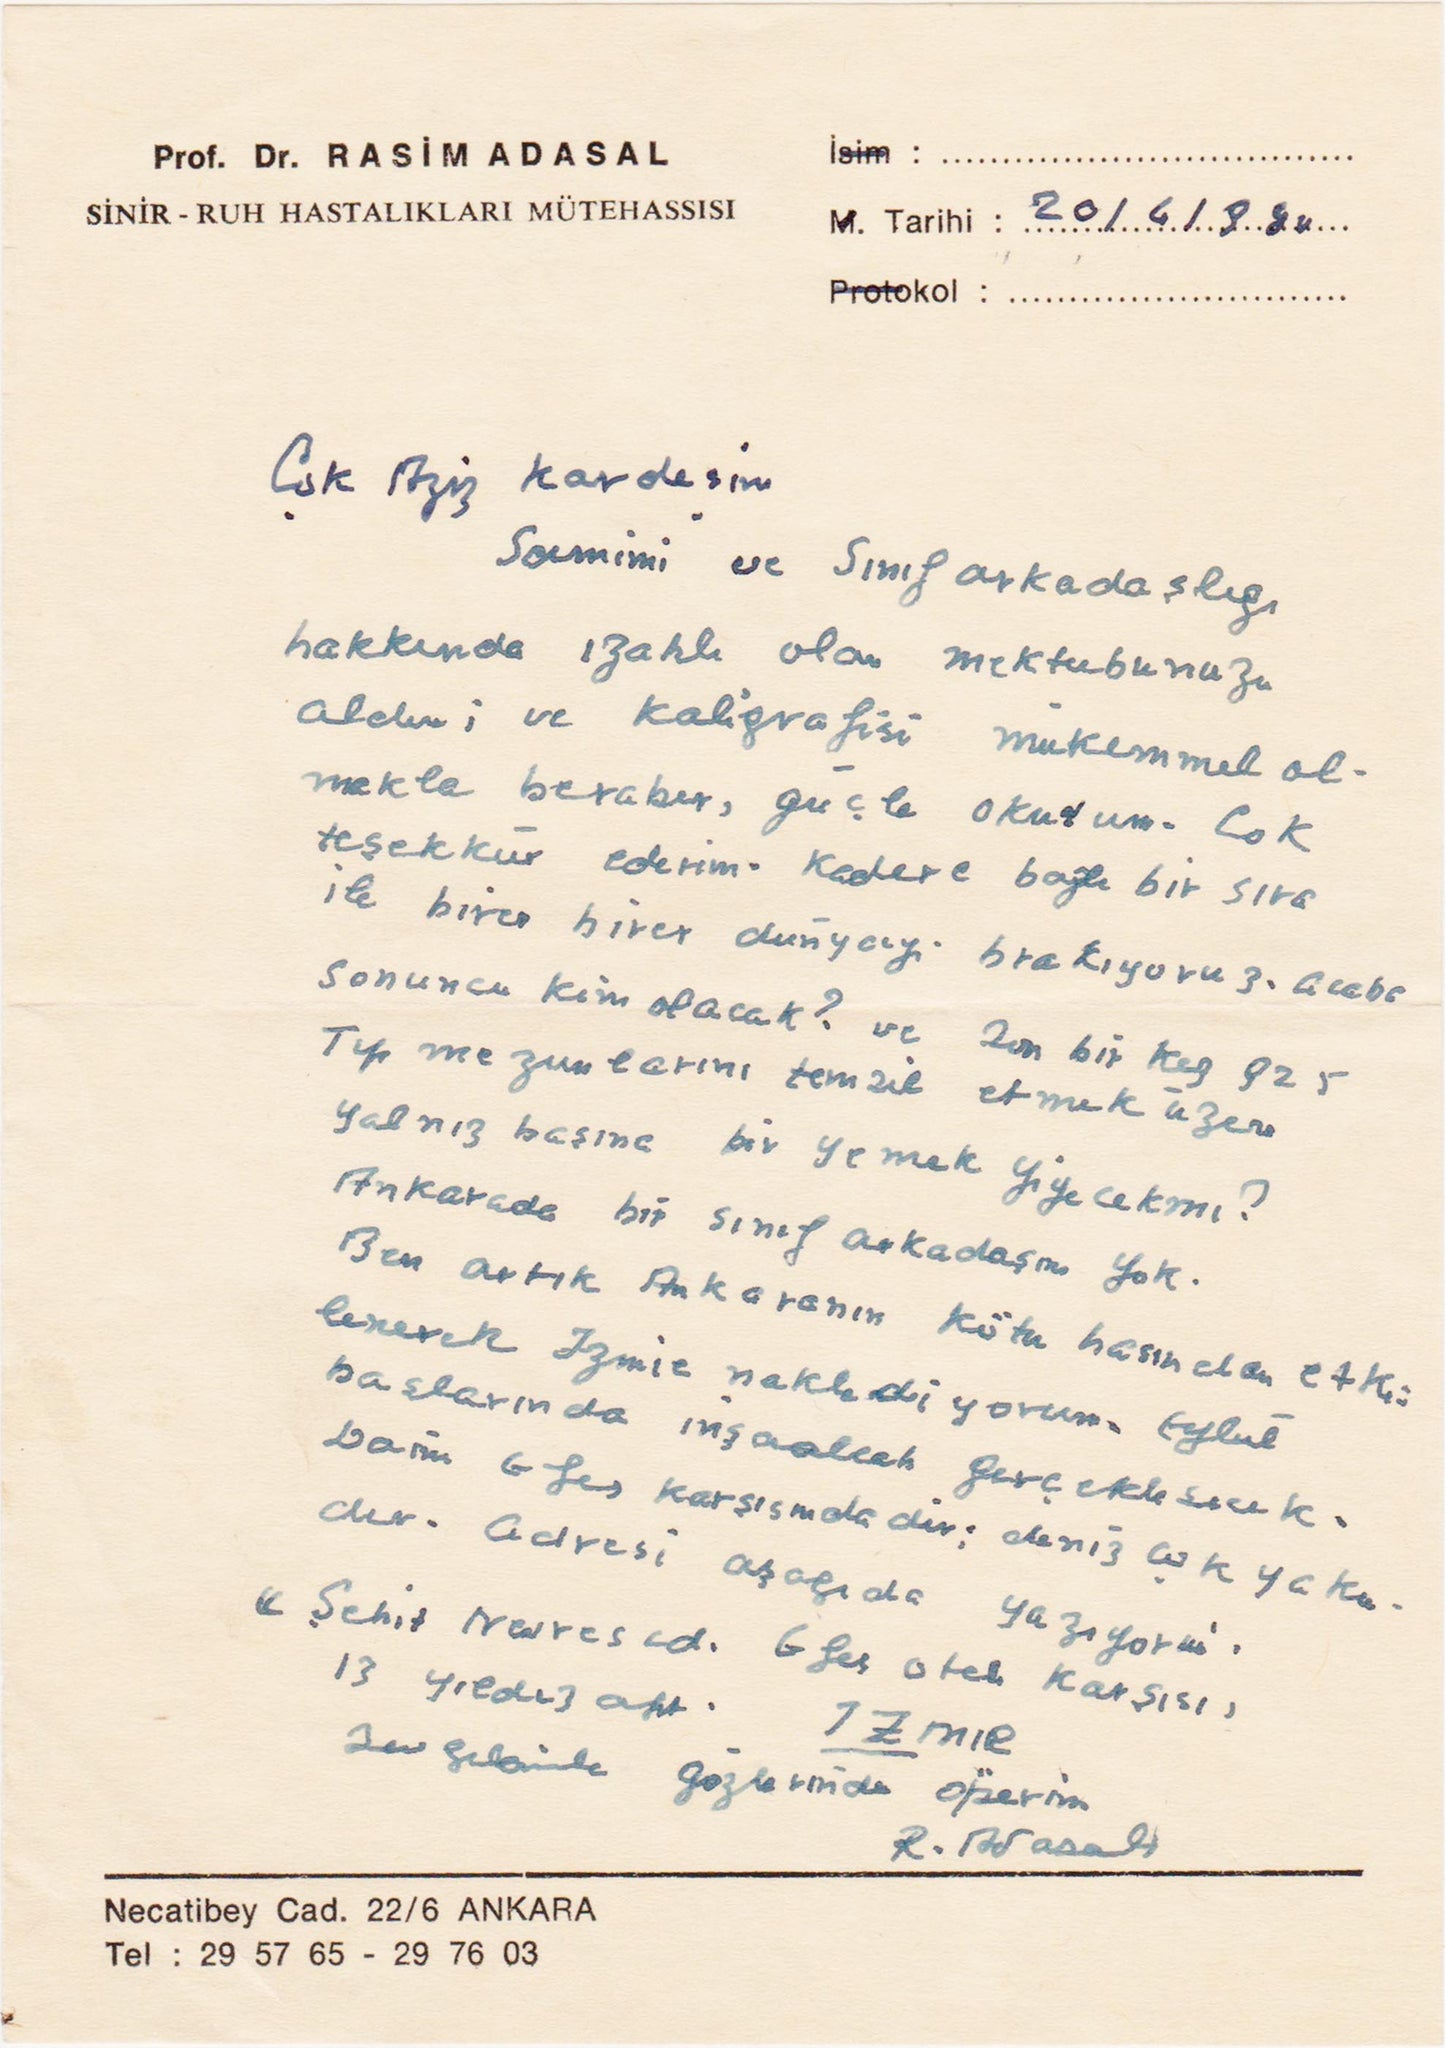 Prof. Dr. RASİM ADASAL
SİNİR - RUH HASTALIKLARI MÜTEHASSISI
İsim :
M. Tarihi : 20/6/
Protokol :
Çok Aziz kardeşim
Samimi ve Sınıf arkadaşlığı
hakkında izahlı olan mektubunuzu
aldım ve kaligrafisi mükemmel ol-
makla beraber, güçle okudum. Çok
teşekkür ederim. Kadere bağlı bir sıra
ile birer birer dünyayı brakıyoruz. Acaba
sonuncu kim olacak? ve son bir kez 925
Tıp mezunlarını temsil etmek üzere
yalnız başına bir yemek yiyecekmi?
Ankarada bir sınıf arkadaşım yok.
Ben artık Ankaranın kötü hasından etki-
lenerek Izmire naklediyorum. Eylül
başlarında inşaallah gerçekleşecek.
Daim Efes karşısındadır; deniz çok yakın-
dır. Adresi aşağıda yazıyorum.
“ Şehit Nevres cd. Efes oteli karşısı,
13 yıldız apt. IZMIR
Sevgilerimle gözlerinden öperim
R. Adasal
Necatibey Cad. 22/6 ANKARA
Tel : 29 57 65 - 29 76 03